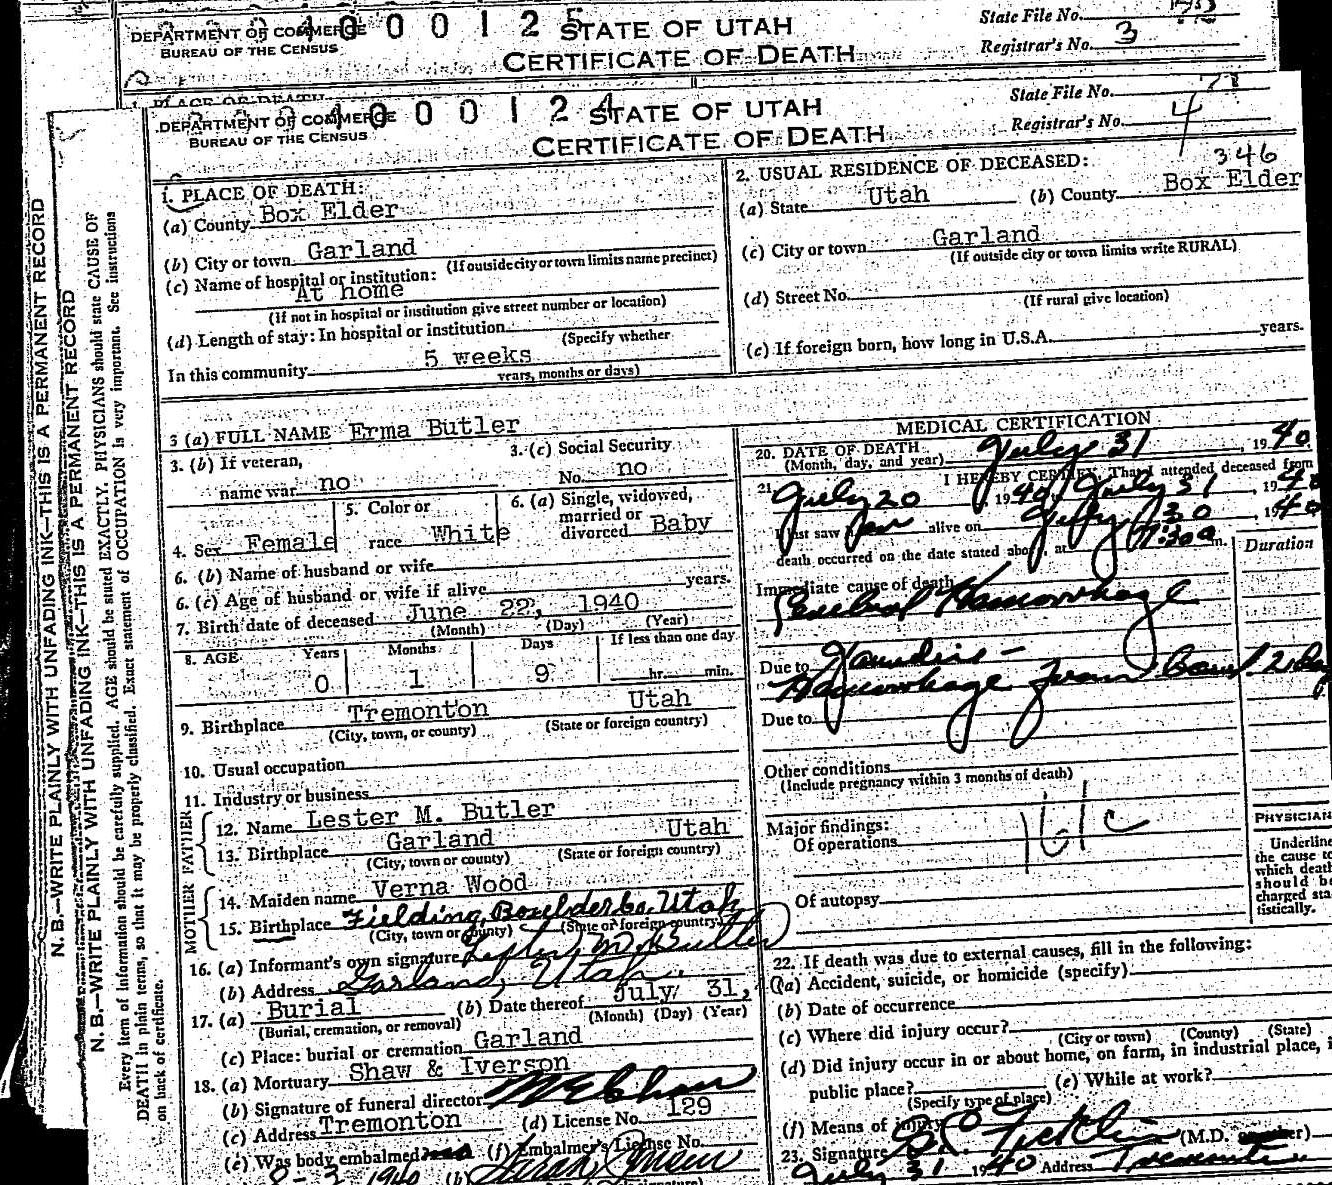 DEPARTMENT OF COMMERCE
BUREAU OF THE CENSUS
400012 5
STATE OF UTAH
CERTIFICATE OF DEATH
State File No.
Registrar's No. 3
1. PLACE OF DEATH
DEPARTMENT OF COMMERCE
BUREAU OF THE CENSUS
400012 4
STATE OF UTAH
CERTIFICATE OF DEATH
State File No.
Registrar's No. 4
N. B.—WRITE PLAINLY WITH UNFADING INK—THIS IS A PERMANENT RECORD
N. B.—WRITE PLAINLY WITH UNFADING INK—THIS IS A PERMANENT RECORD
Every item of information should be carefully supplied. AGE should be stated EXACTLY. PHYSICIANS should state CAUSE OF
DEATH in plain terms, so that it may be properly classified. Exact statement of OCCUPATION is very important. See instructions
on back of certificate.
1. PLACE OF DEATH:
(a) County Box Elder
(b) City or town Garland
(If outside city or town limits name precinct)
(c) Name of hospital or institution:
At home
(If not in hospital or institution give street number or location)
(d) Length of stay: In hospital or institution
(Specify whether
In this community 5 weeks
years, months or days)
2. USUAL RESIDENCE OF DECEASED:
346
(a) State Utah (b) County Box Elder
(c) City or town Garland
(If outside city or town limits write RURAL)
(d) Street No.
(If rural give location)
(e) If foreign born, how long in U.S.A. years.
3 (a) FULL NAME Erma Butler
3. (b) If veteran,
name war no
3. (c) Social Security
No. no
4. Sex Female
5. Color or
race White
6. (a) Single, widowed,
married or
divorced Baby
6. (b) Name of husband or wife
6. (c) Age of husband or wife if alive years.
7. Birth date of deceased June 22, 1940
(Month) (Day) (Year)
8. AGE Years Months Days If less than one day
0 1 9 hr. min.
9. Birthplace Tremonton Utah
(City, town, or county) (State or foreign country)
10. Usual occupation
11. Industry or business
FATHER
12. Name Lester M. Butler
13. Birthplace Garland Utah
(City, town or county) (State or foreign country)
MOTHER
14. Maiden name Verna Wood
15. Birthplace Fielding, Utah
(City, town or county) (State or foreign country)
16. (a) Informant's own signature Lester M. Butler
(b) Address Garland, Utah.
17. (a) Burial (b) Date thereof July 31,
(Burial, cremation, or removal) (Month) (Day) (Year)
(c) Place: burial or cremation Garland
18. (a) Mortuary Shaw & Iverson
(b) Signature of funeral director
(c) Address Tremonton (d) License No. 129
(e) Was body embalmed (f) Embalmer's License No.
8-2 1940 (b)
MEDICAL CERTIFICATION
20. DATE OF DEATH
(Month, day, and year) July 31, 1940
21. I HEREBY CERTIFY, That I attended deceased from
July 20 1940, July 31, 1940
last saw her alive on July 30, 1940
death occurred on the date stated above, at m.
Duration
Immediate cause of death
Cerebral Hemorrhage
Due to Jaundice -
Hemorrhage from Bowel 2 Day
Due to
Other conditions
(Include pregnancy within 3 months of death)
161c
Major findings:
Of operations
Of autopsy
PHYSICIAN
Underline
the cause to
which death
should be
charged sta-
tistically.
22. If death was due to external causes, fill in the following:
(a) Accident, suicide, or homicide (specify)
(b) Date of occurrence
(c) Where did injury occur?
(City or town) (County) (State)
(d) Did injury occur in or about home, on farm, in industrial place, i
public place? (e) While at work?
(Specify type of place)
(f) Means of injury
23. Signature (M.D.
July 31 1940 Address Tremonton